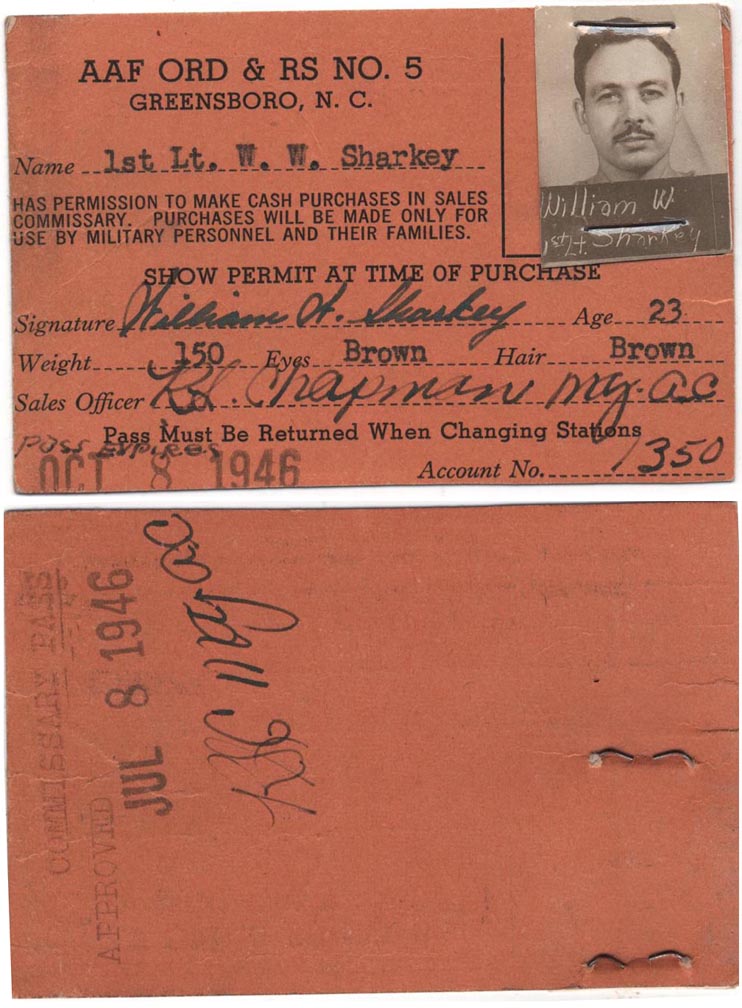 AAF ORD & RS NO. 5
GREENSBORO, N. C.
Name 1st Lt. W. W. Sharkey
HAS PERMISSION TO MAKE CASH PURCHASES IN SALES
COMMISSARY. PURCHASES WILL BE MADE ONLY FOR
USE BY MILITARY PERSONNEL AND THEIR FAMILIES.
William W.
Sharkey
SHOW PERMIT AT TIME OF PURCHASE
Signature William W. Sharkey Age 23
Weight 150 Eyes Brown Hair Brown
Sales Officer Chapman
Pass Must Be Returned When Changing Stations
Pass Expires
OCT 8 1946
Account No. 1350
COMMISSARY PASS
APPROVED
JUL 8 1946